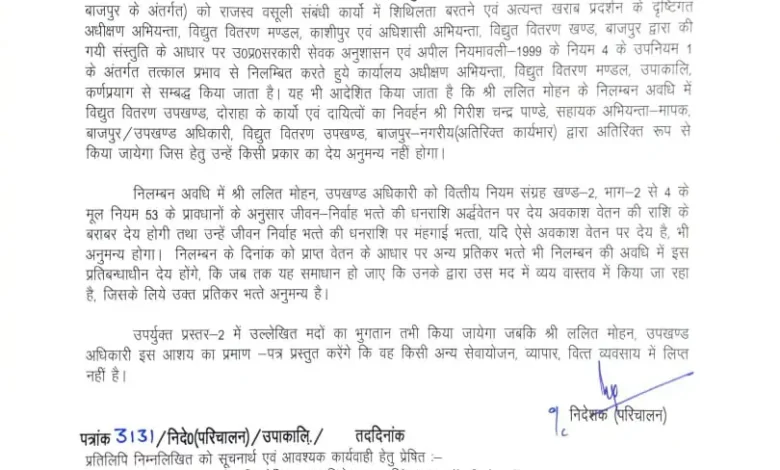 बाजपुर के अंतर्गत) को राजस्व वसूली संबंधी कार्यो में शिथिलता बरतने एवं अत्यन्त खराब प्रदर्शन के दृष्टिगत
अधीक्षण अभियन्ता, विद्युत वितरण मण्डल, काशीपुर एवं अधिशासी अभियन्ता, विद्युत वितरण खण्ड, बाजपुर द्वारा की
गयी संस्तुति के आधार पर उ०प्र०सरकारी सेवक अनुशासन एवं अपील नियमावली–1999 के नियम 4 के उपनियम 1
के अंतर्गत तत्काल प्रभाव से निलम्बित करते हुये कार्यालय अधीक्षण अभियन्ता, विद्युत वितरण मण्डल, उपाकालि,
कर्णप्रयाग से सम्बद्ध किया जाता है। यह भी आदेशित किया जाता है कि श्री ललित मोहन के निलम्बन अवधि में
विद्युत वितरण उपखण्ड, दोराहा के कार्यो एवं दायित्वों का निवर्हन श्री गिरीश चन्द्र पाण्डे, सहायक अभियन्ता–मापक,
बाजपुर/उपखण्ड अधिकारी, विद्युत वितरण उपखण्ड, बाजपुर–नगरीय(अतिरिक्त कार्यभार) द्वारा अतिरिक्त रूप से
किया जायेगा जिस हेतु उन्हें किसी प्रकार का देय अनुमन्य नहीं होगा।
निलम्बन अवधि में श्री ललित मोहन, उपखण्ड अधिकारी को वित्तीय नियम संग्रह खण्ड–2, भाग–2 से 4 के
मूल नियम 53 के प्रावधानों के अनुसार जीवन–निर्वाह भत्ते की धनराशि अर्द्धवेतन पर देय अवकाश वेतन की राशि के
बराबर देय होगी तथा उन्हें जीवन निर्वाह भत्ते की धनराशि पर मंहगाई भत्ता, यदि ऐसे अवकाश वेतन पर देय है, भी
अनुमन्य होगा। निलम्बन के दिनांक को प्राप्त वेतन के आधार पर अन्य प्रतिकर भत्ते भी निलम्बन की अवधि में इस
प्रतिबन्धाधीन देय होंगे, कि जब तक यह समाधान हो जाए कि उनके द्वारा उस मद में व्यय वास्तव में किया जा रहा
है, जिसके लिये उक्त प्रतिकर भत्ते अनुमन्य है।
उपर्युक्त प्रस्तर–2 में उल्लेखित मदों का भुगतान तभी किया जायेगा जबकि श्री ललित मोहन, उपखण्ड
अधिकारी इस आशय का प्रमाण –पत्र प्रस्तुत करेंगे कि वह किसी अन्य सेवायोजन, व्यापार, वित्त व्यवसाय में लिप्त
नहीं है।
निदेशक (परिचालन)
पत्रांक 3131/निदे०(परिचालन)/उपाकालि./ तददिनांक
प्रतिलिपि निम्नलिखित को सूचनार्थ एवं आवश्यक कार्यवाही हेतु प्रेषित :–